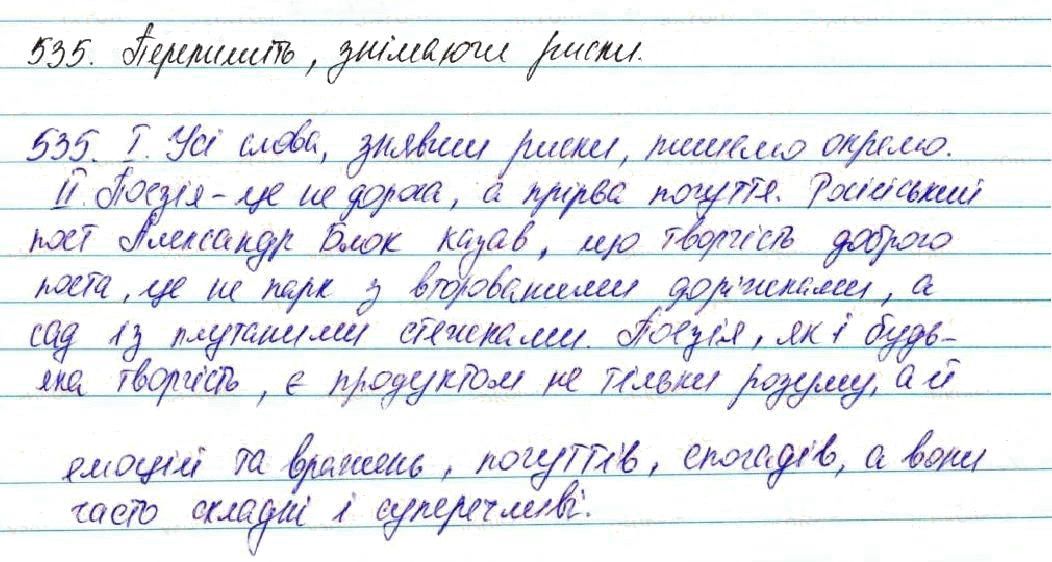 535. Перепишіть, знімаючи риски.
535. І. Усі слова, знявши риски, пишемо окремо.
ІІ. Поезія – це не дорога, а прірва почуття. Російський
поет Александр Блок казав, що творчість доброго
поета, це не парк з второваними доріжками, а
сад із плутаними стежками. Поезія, як і будь-
яка творчість, є продуктом не тільки розуму, а й
емоцій та вражень, почуттів, спогадів, а вони
часто складні і суперечливі.